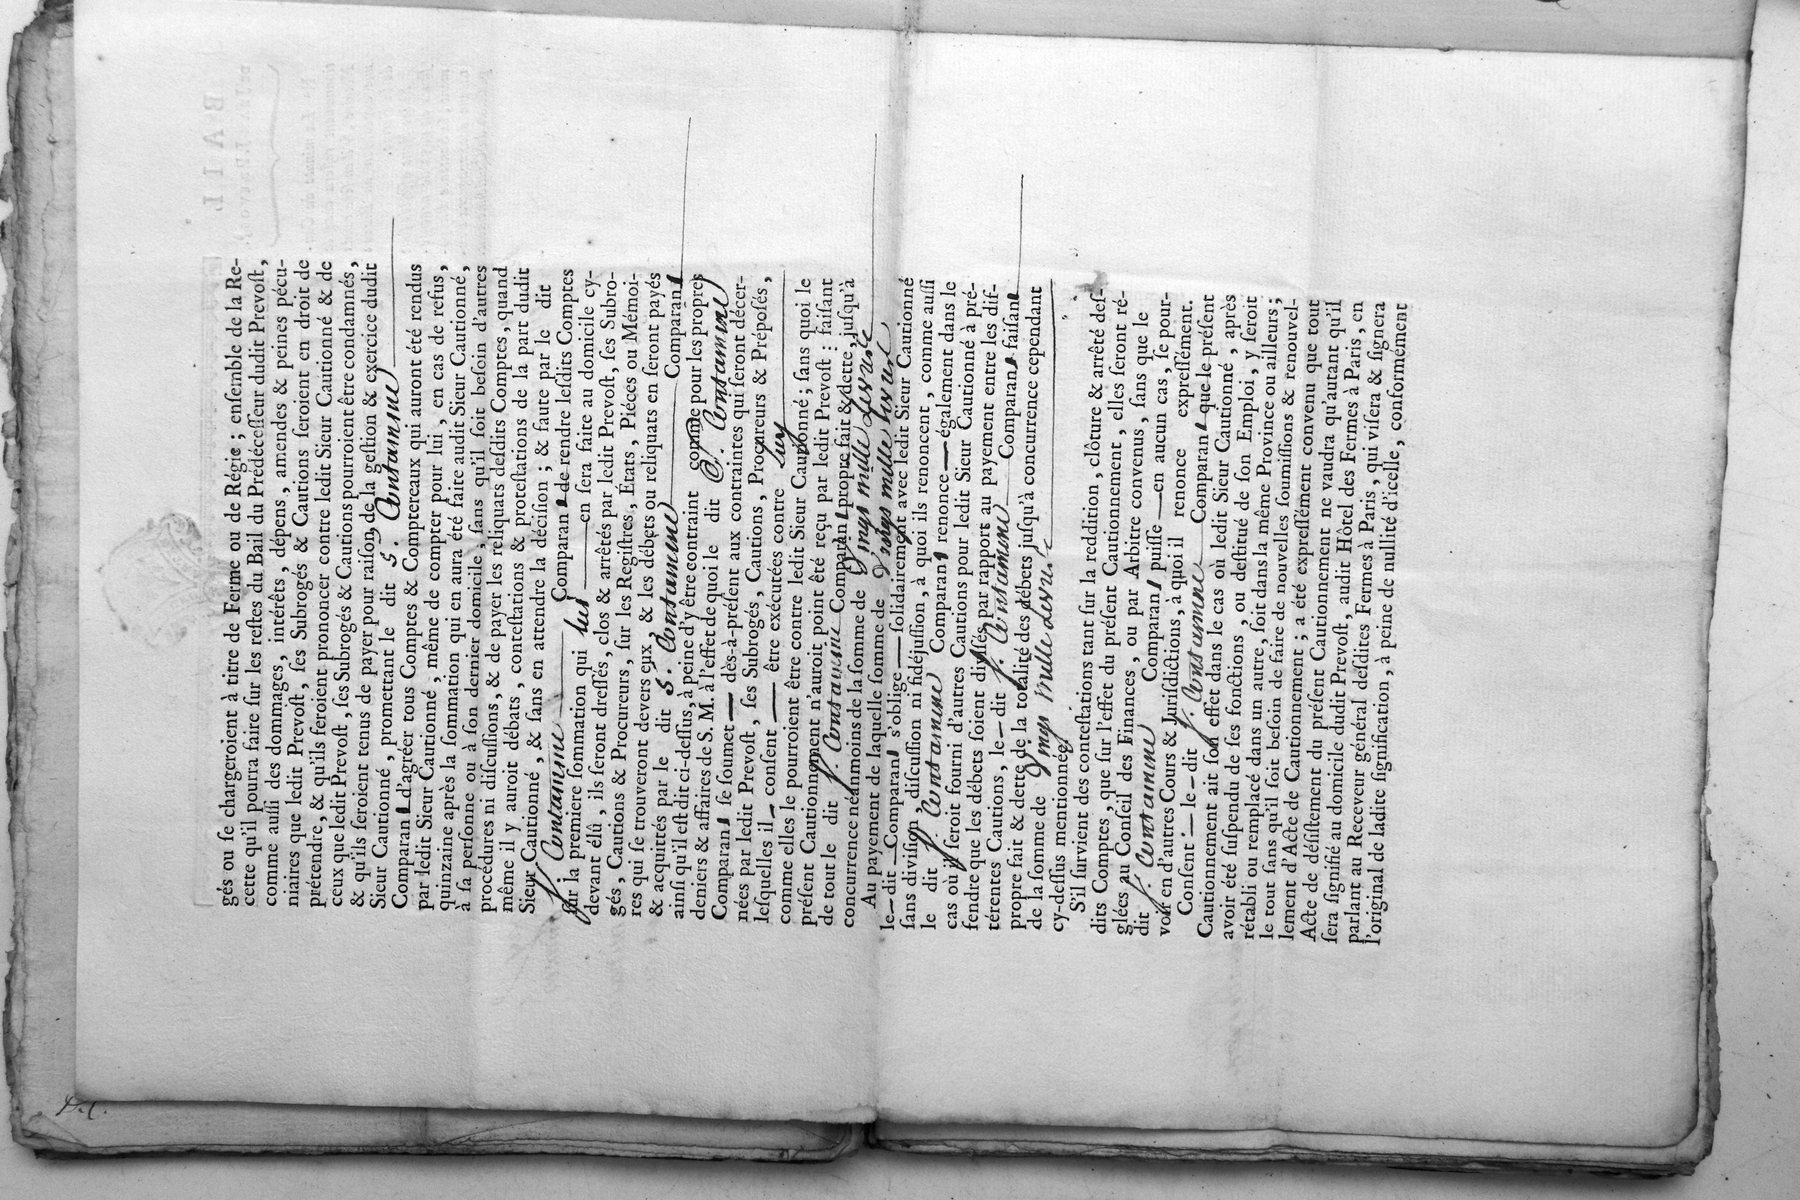 gés ou ſe chargeroient à titre de Ferme ou de Régie ; enſemble de la Re-
cette qu'il pourra faire ſur les reſtes du Bail du Prédéceſſeur dudit Prevoſt,
comme auſſi des dommages, intérêts, dépens, amendes & peines pécu-
niaires que ledit Prevoſt, ſes Subrogés & Cautions ſeroient en droit de
prétendre, & qu'ils feroient prononcer contre ledit Sieur Cautionné & de
ceux que ledit Prevoſt, ſes Subrogés & Cautions pourroient être condamnés,
& qu'ils ſeroient tenus de payer pour raiſon de la geſtion & exercice dudit
Sieur Cautionné, promettant le dit S. Contamine
Comparant d'agréer tous Comptes & Comptereaux qui auront été rendus
par ledit Sieur Cautionné, même de compter pour lui, en cas de refus,
quinzaine après la ſommation qui en aura été faite audit Sieur Cautionné,
à ſa perſonne ou à ſon dernier domicile, ſans qu'il ſoit beſoin d'autres
procédures ni diſcuſſions, & de payer les reliquats deſdits Comptes, quand
même il y auroit débats, conteſtations & proteſtations de la part dudit
Sieur Cautionné, & ſans en attendre la déciſion ; & faute par le dit
S. Contamine Comparant de rendre leſdits Comptes
ſur la premiere ſommation qui lui en ſera faite au domicile cy-
devant élû, ils ſeront dreſſés, clos & arrêtés par ledit Prevoſt, ſes Subro-
gés, Cautions & Procureurs, ſur les Regiſtres, États, Piéces ou Mémoi-
res qui ſe trouveront devers eux, & les débets ou reliquats en ſeront payés
& acquités par le dit S. Contamine Comparant
ainſi qu'il eſt dit ci-deſſus, à peine d'y être contraint comme pour les propres
deniers & affaires de S. M. à l'effet de quoi le dit S. Contamine
Comparant ſe ſoumet dès-à-préſent aux contraintes qui ſeront décer-
nées par ledit Prevoſt, ſes Subrogés, Cautions, Procureurs & Prépoſés,
leſquelles il conſent être exécutées contre luy
comme elles le pourroient être contre ledit Sieur Cautionné ; ſans quoi le
préſent Cautionnement n'auroit point été reçu par ledit Prevoſt : faiſant
de tout le dit S. Contamine Comparant propre fait & dette, juſqu'à
concurrence néanmoins de la ſomme de Vingt mille Livres
Au payement de laquelle ſomme de Vingt mille Livres
le dit Comparant s'oblige ſolidairement avec ledit Sieur Cautionné
ſans diviſion, diſcuſſion ni fidéjuſſion, à quoi ils renoncent, comme auſſi
le dit S. Contamine Comparant renonce également dans le
cas où il ſeroit fourni d'autres Cautions pour ledit Sieur Cautionné à pré-
tendre que les débets ſoient diviſés par rapport au payement entre les dif-
férentes Cautions, le dit S. Contamine Comparant faiſant
propre fait & dette de la totalité des débets juſqu'à concurrence cependant
de la ſomme de Vingt Mille Livres
cy-deſſus mentionnée.
S'il ſurvient des conteſtations tant ſur la reddition, clôture & arrêté deſ-
dits Comptes, que ſur l'effet du préſent Cautionnement, elles ſeront ré-
glées au Conſeil des Finances, ou par Arbitre convenus, ſans que le
dit S. Contamine Comparant puiſſe en aucun cas, ſe pour-
voir en d'autres Cours & Juriſdictions, à quoi il renonce expreſſément.
Conſent le dit S. Contamine Comparant que le préſent
Cautionnement ait ſon effet dans le cas où ledit Sieur Cautionné, après
avoir été ſuſpendu de ſes fonctions, ou deſtitué de ſon Emploi, y ſeroit
rétabli ou remplacé dans un autre, ſoit dans la même Province ou ailleurs ;
le tout ſans qu'il ſoit beſoin de faire de nouvelles ſoumiſſions & renouvel-
lement d'Acte de Cautionnement ; a été expreſſément convenu que tout
Acte de déſiſtement du préſent Cautionnement ne vaudra qu'autant qu'il
ſera ſignifié au domicile dudit Prevoſt, audit Hôtel des Fermes à Paris, en
parlant au Receveur général deſdites Fermes à Paris, qui viſera & ſignera
l'original de ladite ſignification, à peine de nullité d'icelle, conformément